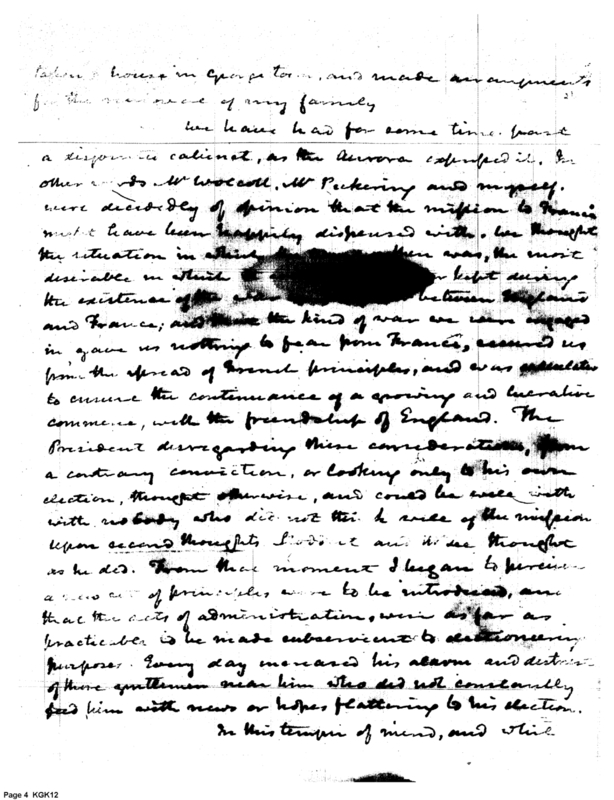 taken a house in George town, and made arrangements
for the removal of my family
We have had for some time past
a disjointed cabinet, as the Aurora expressed it. In
other words Mr Wolcott, Mr Pickering and myself.
were decidedly of opinion that the mission to France
might have been happily dispensed with. We thought
the situation in which then was, the most
desirable in which kept during
the existence of the war between England
and France; and the kind of war we were engaged
in gave us nothing to fear from France, secured us
from the spread of French principles, and was calculated
to ensure the continuance of a growing and lucrative
commerce, with the friendship of England. The
President disregarding these considerations, from
a contrary conviction, or looking only to his own
election, thought otherwise, and could be well with
with nobody who did not think well of the mission
upon second thoughts thought
as he did. From that moment I began to perceive
a new set of principles were to be introduced, and
that the acts of administration, were as far as
practicable to be made subservient to electioneering
purposes. Every day increased his alarm and distrust
of those gentlemen near him who did not constantly
feed him with news or hopes flattering to his election.
In this temper of mind, and while
Page 4 KGK12